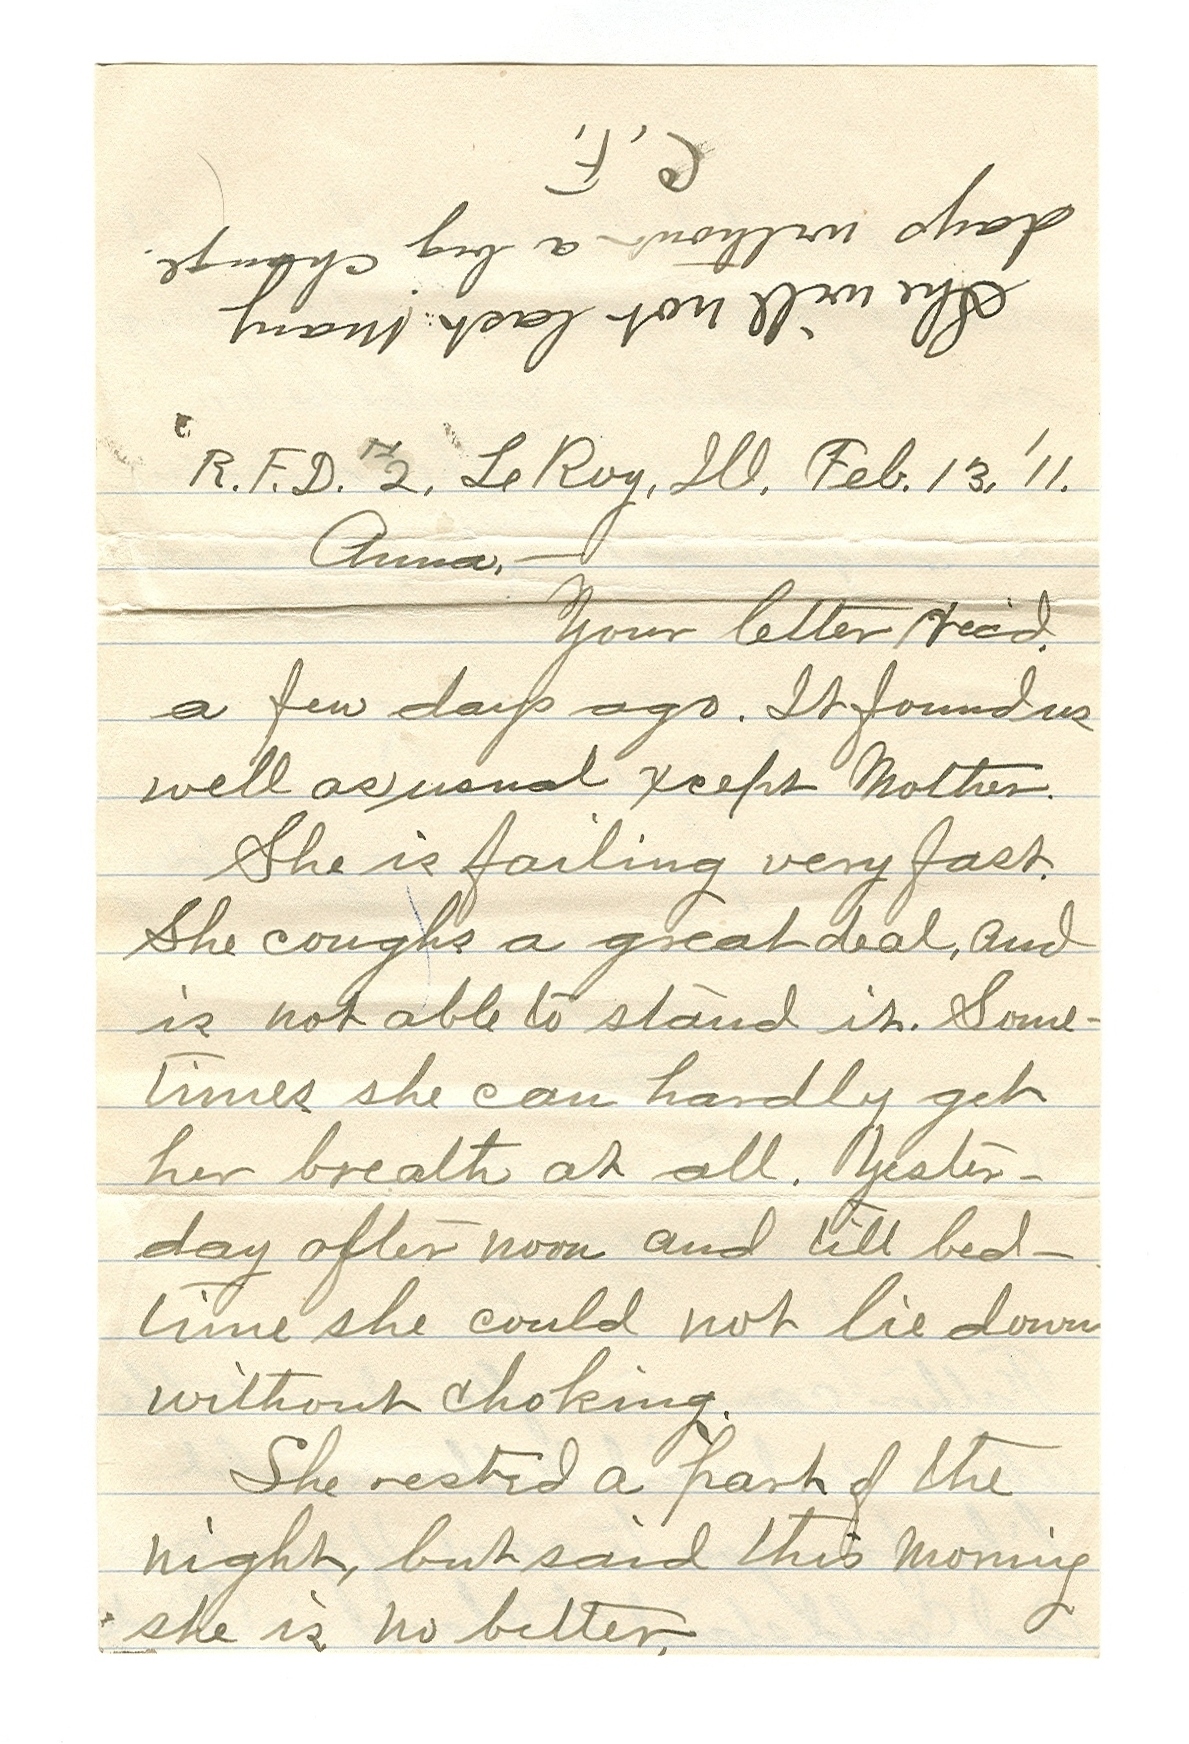 She will not last many
days without a big change.
C.F.
R.F.D. #2, LeRoy, Ill. Feb. 13, '11.
Anna,—
Your letter rec'd.
a few days ago. It found us
well as usual xcept Mother.
She is failing very fast.
She coughs a great deal, and
is not able to stand it. Some-
times she can hardly get
her breath at all. Yester-
day after noon and till bed-
time she could not lie down
without choking.
She rested a part of the
night, but said this morning
she is no better.